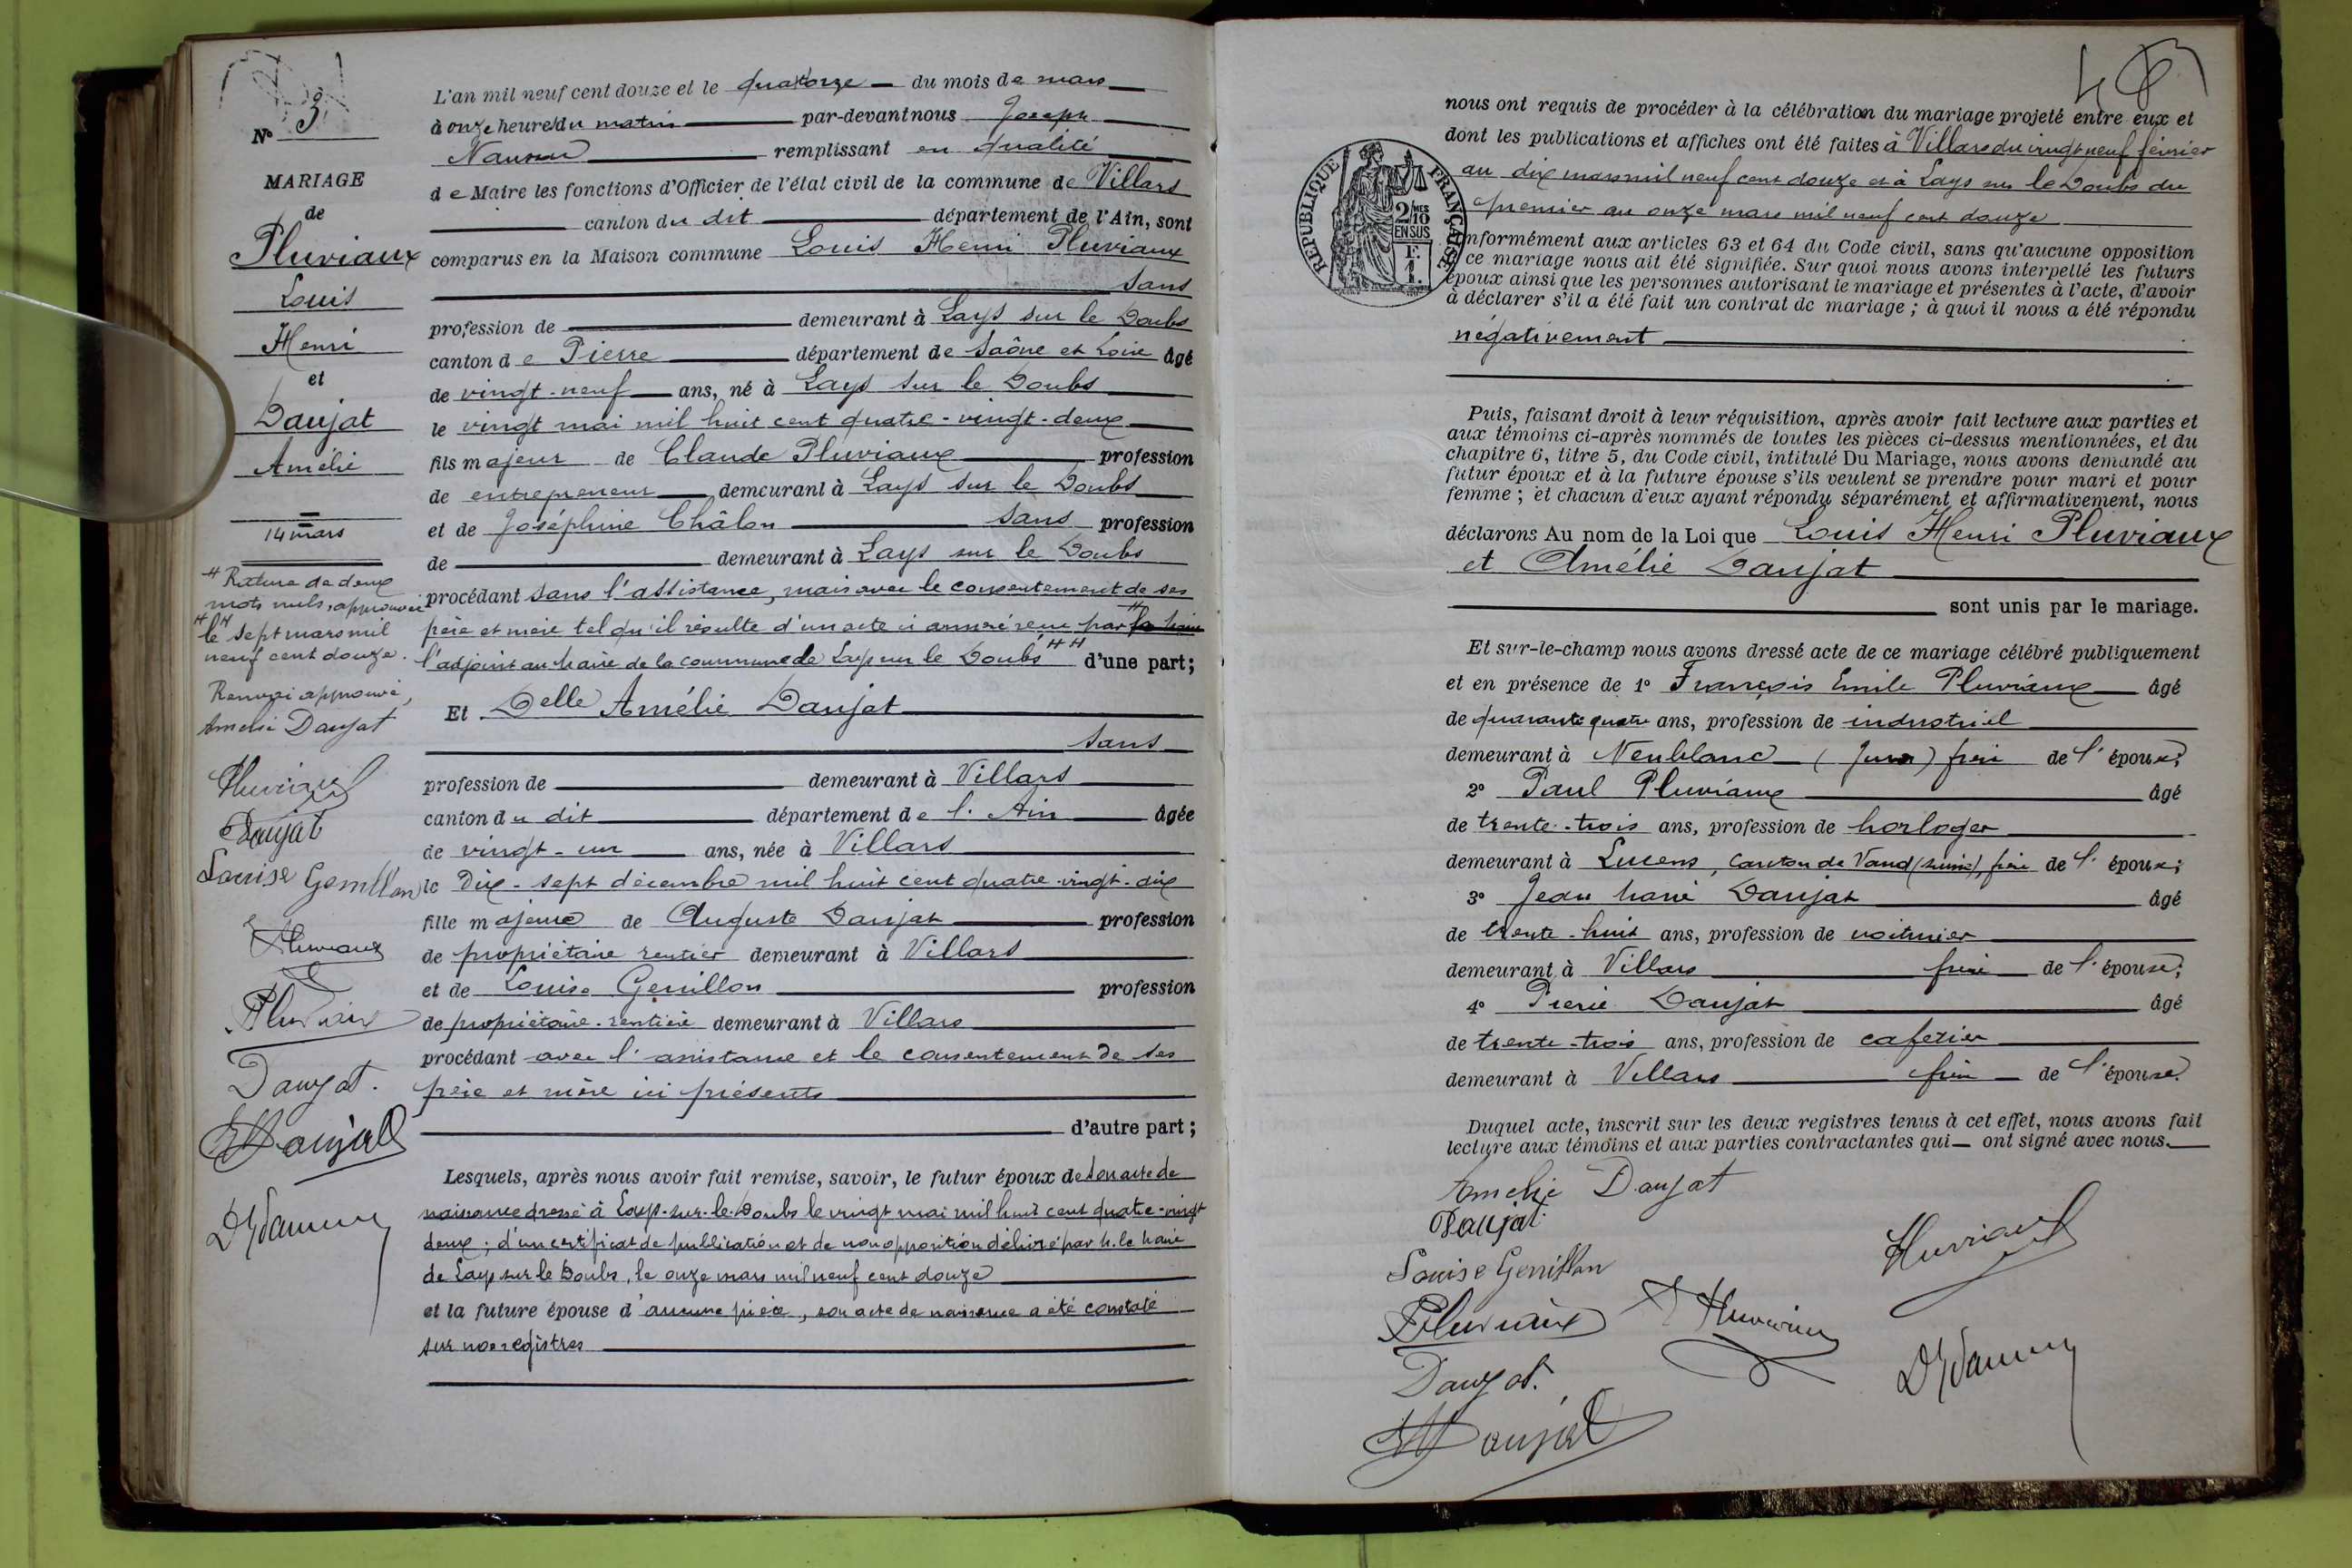 N° 3
MARIAGE
de
Pluviaux
Louis
Henri
et
Daujat
Amélie
14 mars
Rature de deux
mots nuls, approuvée
le sept mars mil
neuf cent douze.
Renvoi approuvé,
Amélie Daujat
Pluviaux
Daujat
Louise Genillon
Pluviaux
Pluviaux
Daujat.
Daujat
L'an mil neuf cent douze et le quatorze du mois de mars
à onze heures du matin par-devant nous Joseph
remplissant en qualité
de Maire les fonctions d'Officier de l'état civil de la commune de Villars
canton du dit département de l'Ain, sont
comparus en la Maison commune Louis Henri Pluviaux
sans
profession de demeurant à Lays sur le Doubs
canton de Pierre département de Saône et Loire âgé
de vingt-neuf ans, né à Lays sur le Doubs
le vingt mai mil huit cent quatre-vingt-deux
fils majeur de Claude Pluviaux profession
de entrepreneur demeurant à Lays sur le Doubs
et de Joséphine Châlon sans profession
de demeurant à Lays sur le Doubs
procédant sans l'assistance, mais avec le consentement de ses
père et mère tel qu'il résulte d'un acte ci annexé reçu par le Maire
l'adjoint au Maire de la commune de Lays sur le Doubs d'une part;
Et Delle Amélie Daujat
sans
profession de demeurant à Villars
canton du dit département de l'Ain âgée
de vingt-un ans, née à Villars
le Dix-sept décembre mil huit cent quatre-vingt-dix
fille majeure de Auguste Daujat profession
de propriétaire rentier demeurant à Villars
et de Louise Genillon profession
de propriétaire-rentière demeurant à Villars
procédant avec l'assistance et le consentement de ses
père et mère ici présents
d'autre part;
Lesquels, après nous avoir fait remise, savoir, le futur époux de son acte de
naissance dressé à Lays-sur-le-Doubs le vingt mai mil huit cent quatre-vingt
deux; d'un certificat de publication et de non opposition délivré par M. le Maire
de Lays sur le Doubs, le onze mars mil neuf cent douze
et la future épouse d'aucune pièce, son acte de naissance a été constaté
sur nos registres
nous ont requis de procéder à la célébration du mariage projeté entre eux et
dont les publications et affiches ont été faites à Villars du vingt-neuf février
au dix mars mil neuf cent douze et à Lays sur le Doubs du
premier au onze mars mil neuf cent douze
RÉPUBLIQUE FRANÇAISE
2/10 MES
EN SUS
F.
1.
nformément aux articles 63 et 64 du Code civil, sans qu'aucune opposition
ce mariage nous ait été signifiée. Sur quoi nous avons interpellé les futurs
époux ainsi que les personnes autorisant le mariage et présentes à l'acte, d'avoir
à déclarer s'il a été fait un contrat de mariage; à quoi il nous a été répondu
négativement
Puis, faisant droit à leur réquisition, après avoir fait lecture aux parties et
aux témoins ci-après nommés de toutes les pièces ci-dessus mentionnées, et du
chapitre 6, titre 5, du Code civil, intitulé Du Mariage, nous avons demandé au
futur époux et à la future épouse s'ils veulent se prendre pour mari et pour
femme; et chacun d'eux ayant répondu séparément et affirmativement, nous
déclarons Au nom de la Loi que Louis Henri Pluviaux
et Amélie Daujat
sont unis par le mariage.
Et sur-le-champ nous avons dressé acte de ce mariage célébré publiquement
et en présence de 1° François Emile Pluviaux âgé
de quarante quatre ans, profession de industriel
demeurant à Neublanc (Jura) frère de l'époux;
2° Paul Pluviaux âgé
de trente-trois ans, profession de horloger
demeurant à Lucens, Canton de Vaud (suisse), frère de l'époux;
3° Jean Marie Daujat âgé
de trente-huit ans, profession de voiturier
demeurant à Villars frère de l'épouse;
4° Pierre Daujat âgé
de trente-trois ans, profession de cafetier
demeurant à Villars frère de l'épouse.
Duquel acte, inscrit sur les deux registres tenus à cet effet, nous avons fait
lecture aux témoins et aux parties contractantes qui ont signé avec nous.
Amélie Daujat
Daujat
Pluviaux
Louise Genillon
Pluviaux
Pluviaux
Daujat.
Daujat